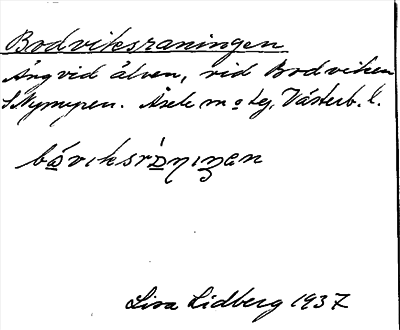 Bodviksraningen
Äng vid älven, vid Bodviken
S Nymyren. Åsele m o lg, Västerb. l.
bávıksrànıŋen
Lisa Lidberg 1937